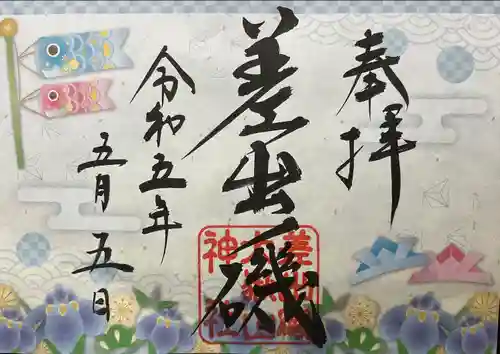 奉拝
差出ノ磯
令和五年
五月五日